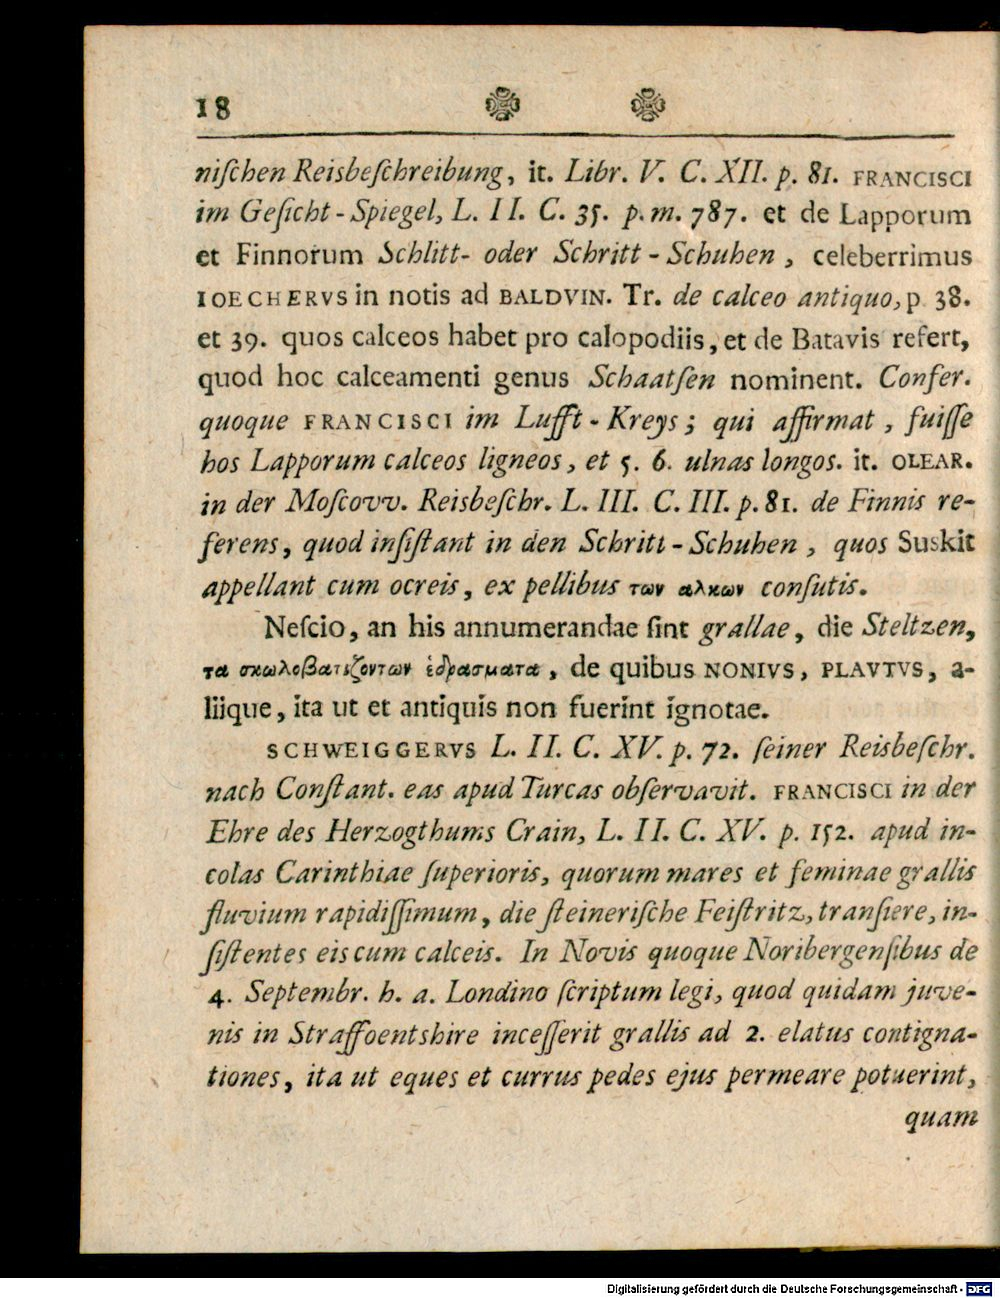 18
niſchen Reisbeſchreibung, it. Libr. V. C. XII. p. 81. FRANCISCI
im Geſicht-Spiegel, L. II. C. 35. p. m. 787. et de Lapporum
et Finnorum Schlitt- oder Schritt-Schuhen, celeberrimus
IOECHERVS in notis ad BALDVIN. Tr. de calceo antiquo, p 38.
et 39. quos calceos habet pro calopodiis, et de Batavis refert,
quod hoc calceamenti genus Schaatſen nominent. Confer.
quoque FRANCISCI im Lufft-Kreys; qui affirmat, fuiſſe
hos Lapporum calceos ligneos, et 5. 6. ulnas longos. it. OLEAR.
in der Moſcovv. Reisbeſchr. L. III. C. III. p. 81. de Finnis re-
ferens, quod inſiſtant in den Schritt-Schuhen, quos Suskit
appellant cum ocreis, ex pellibus των αλκων conſutis.
Neſcio, an his annumerandae ſint grallae, die Steltzen,
τα σκωλοβατιζοντων ἑδρασματα, de quibus NONIVS, PLAVTVS, a-
liique, ita ut et antiquis non fuerint ignotae.
SCHWEIGGERVS L. II. C. XV. p. 72. ſeiner Reisbeſchr.
nach Conſtant. eas apud Turcas obſervavit. FRANCISCI in der
Ehre des Herzogthums Crain, L. II. C. XV. p. 152. apud in-
colas Carinthiae ſuperioris, quorum mares et feminae grallis
fluvium rapidiſſimum, die ſteineriſche Feiſtritz, tranſiere, in-
ſiſtentes eis cum calceis. In Novis quoque Noribergenſibus de
4. Septembr. h. a. Londino ſcriptum legi, quod quidam juve-
nis in Straffoentshire inceſſerit grallis ad 2. elatus contigna-
tiones, ita ut eques et currus pedes ejus permeare potuerint,
quam
Digitalisierung gefördert durch die Deutsche Forschungsgemeinschaft - DFG